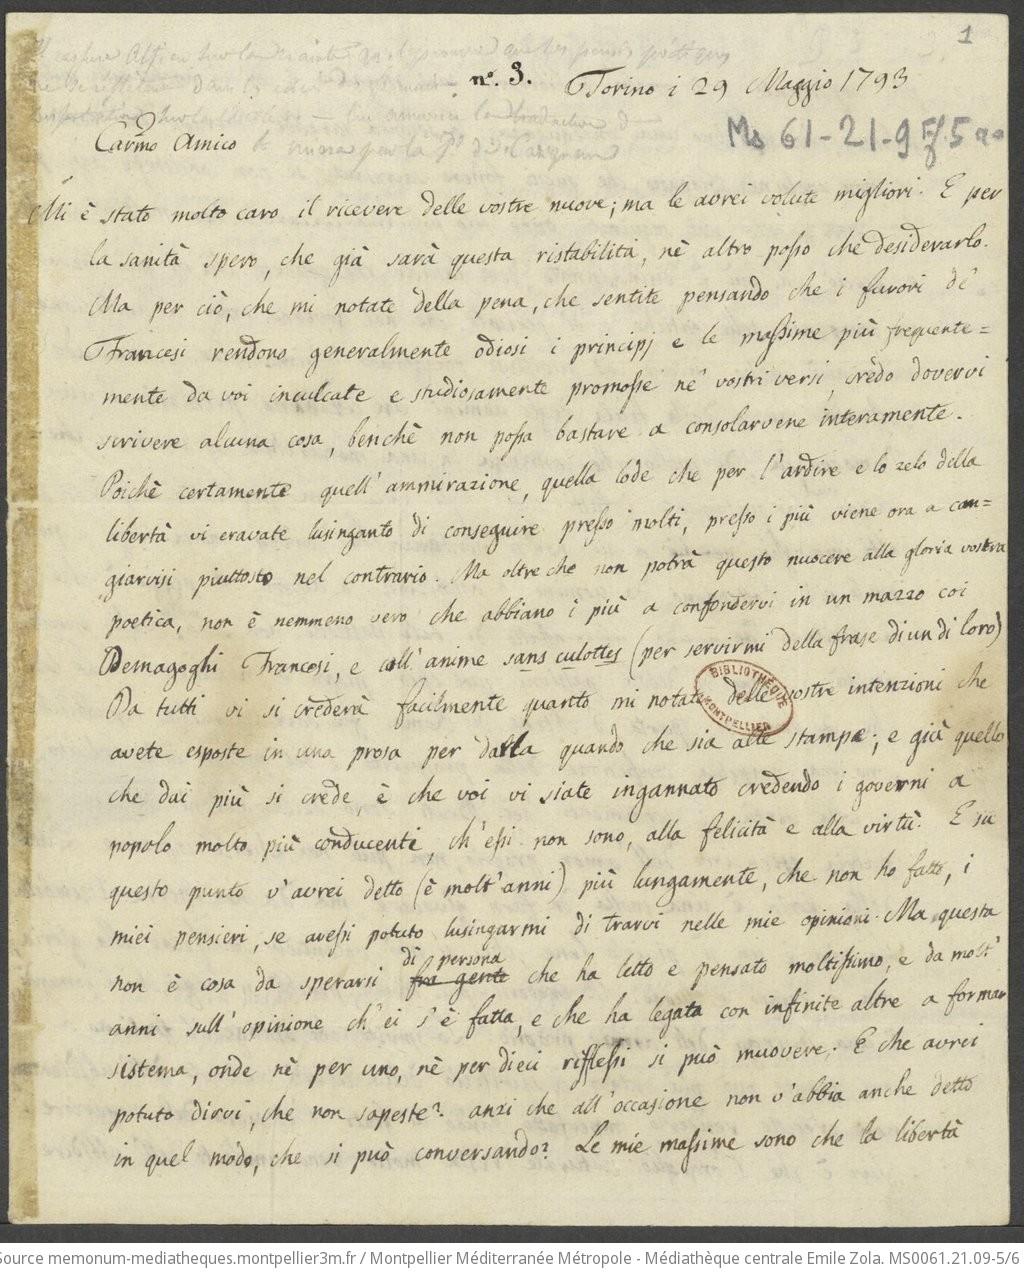 1
nº. 3.
Torino i 29 Maggio 1793
Ms 61-21-9
Carmo Amico
Mi è stato molto caro il ricevere delle vostre nuove; ma le avrei volute migliori. E per
la sanità spero, che già sarà questa ristabilita, nè altro posso che desiderarlo.
Ma per ciò, che mi notate della pena, che sentite pensando che i furori de'
Francesi rendono generalmente odiosi i principj e le massime più frequente=
mente da voi inculcate e studiosamente promosse ne' vostri versi, credo dovervi
scrivere alcuna cosa, benchè non possa bastare a consolarvene interamente.
Poichè certamente quell'ammirazione, quella lode che per l'ardire e lo zelo della
libertà vi eravate lusingato di conseguire presso molti, presso i più viene ora a can=
giarvisi piuttosto nel contrario. Ma oltre che non potrà questo nuocere alla gloria vostra
poetica, non è nemmeno vero che abbiano i più a confondervi in un mazzo coi
Demagoghi Francesi, e coll'anime sans culottes (per servirmi della frase di un di loro)
Da tutti vi si crederà facilmente quanto mi notate delle vostre intenzioni che
avete esposte in una prosa per darla quando che sia alle stampe; e già quello
che dai più si crede, è che voi vi siate ingannato credendo i governi a
popolo molto più conducenti, ch'essi non sono, alla felicità e alla virtù. E su
questo punto v'avrei detto (è molt'anni) più lungamente, che non ho fatto, i
miei pensieri, se avessi potuto lusingarmi di trarvi nelle mie opinioni. Ma questa
di persona
non è cosa da sperarsi fra gente che ha letto e pensato moltissimo, e da molt'
anni sull'opinione ch'ei s'è fatta, e che ha legata con infinite altre a formar
sistema, onde nè per uno, nè per dieci riflessi si può muovere. E che avrei
potuto dirvi, che non sapeste? anzi che all'occasione non v'abbia anche detto
in quel modo, che si può conversando? Le mie massime sono che la libertà
BIBLIOTHÈQUE
MONTPELLIER
Source memonum-mediatheques.montpellier3m.fr / Montpellier Méditerranée Métropole - Médiathèque centrale Emile Zola. MS0061.21.09-5/6